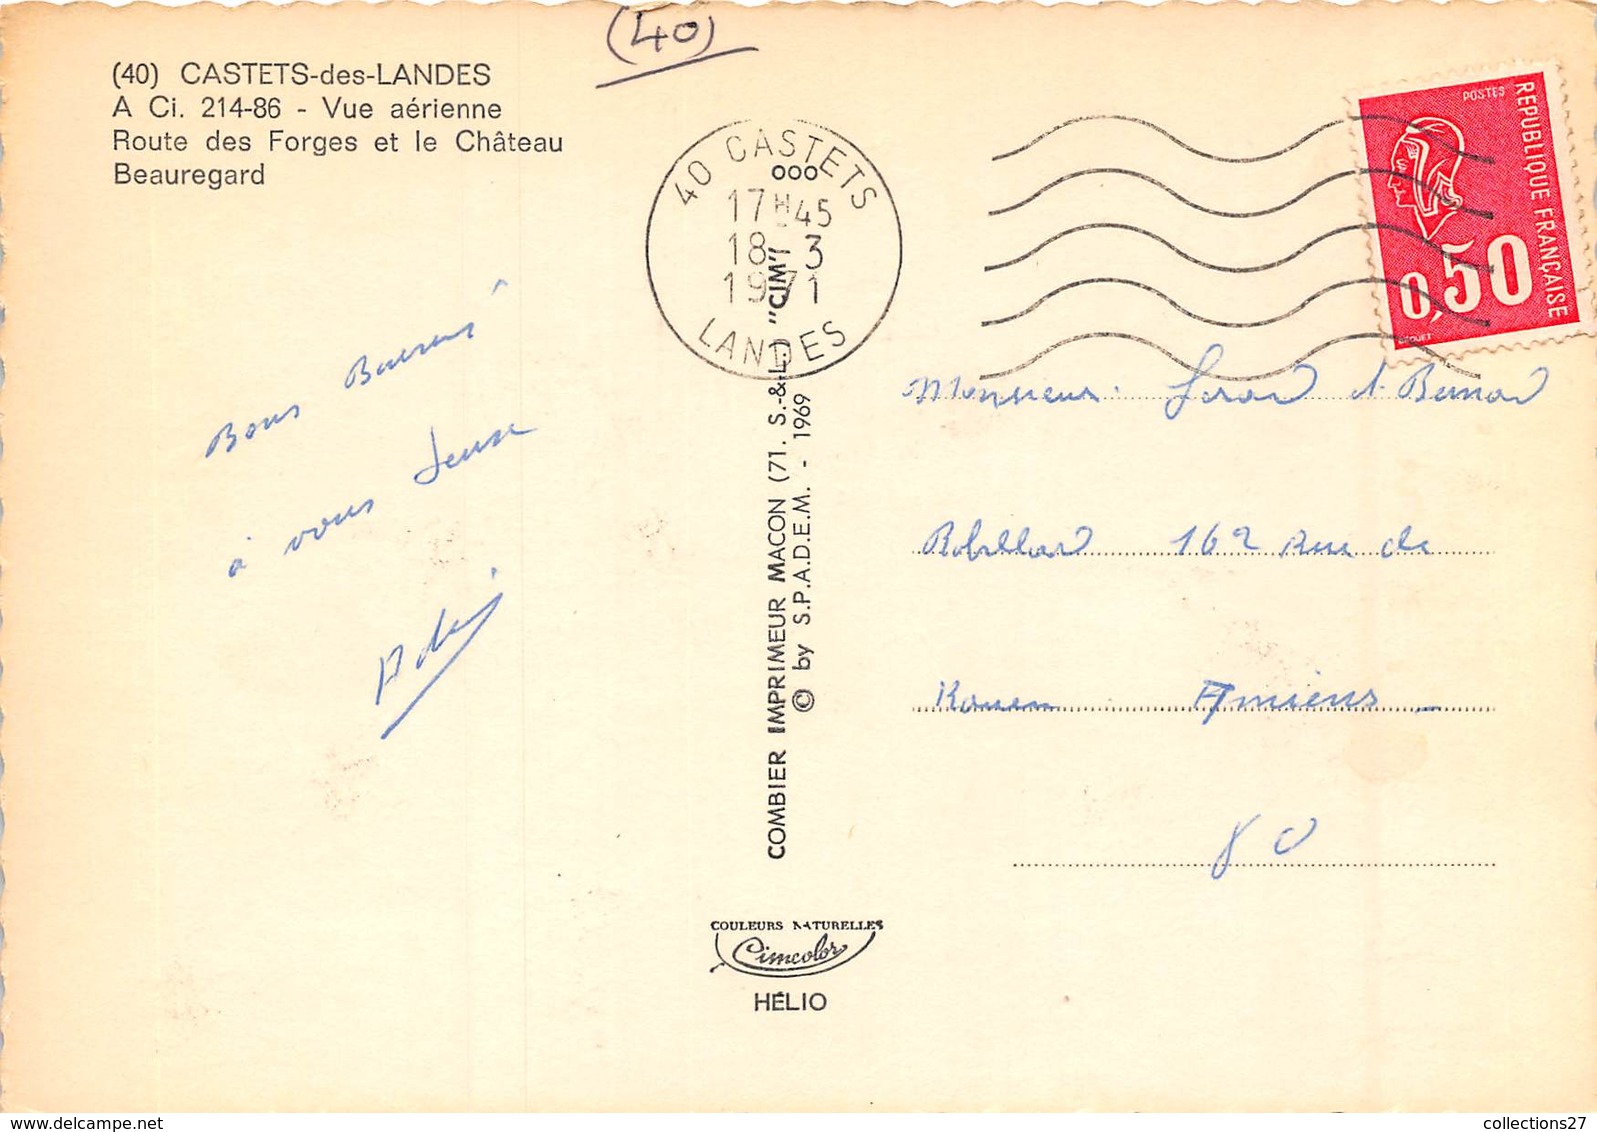 (40)
(40) CASTETS-des-LANDES
A Ci. 214-86 - Vue aérienne
Route des Forges et le Château
Beauregard
40 CASTETS
17H45
18 3
1971
LANDES
POSTES
REPUBLIQUE FRANÇAISE
0,50
Bons Baisers
à vous deux
COMBIER IMPRIMEUR MACON (71. S.-&-L.) "CIM"
© by S.P.A.D.E.M. - 1969
Monsieur
162 Rue de
Rouen Amiens
80
COULEURS NATURELLES
Cimcolor
HÉLIO
collections27